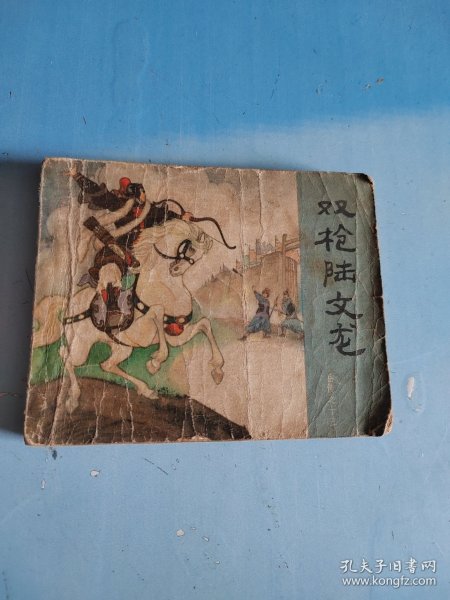 双枪陆文龙
孔夫子旧书网
www.kongfz.com